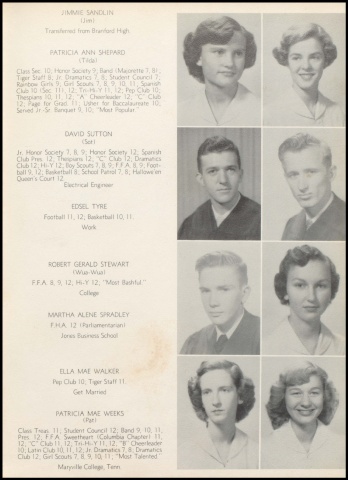 JIMMIE SANDLIN
(Jim)
Transferred from Branford High.
PATRICIA ANN SHEPARD
(Tilda)
Class Sec. 10; Honor Society 9; Band (Majorette 7, 8);
Tiger Staff 8; Jr. Dramatics 7, 8; Student Council 7;
Rainbow Girls 9; Girl Scouts 7, 8, 9, 10, 11; Spanish
Club 10 (Sec. 11), 12; Tri-Hi-Y 11, 12; Pep Club 10;
Thespians 10, 11, 12; "A" Cheerleader 12; "C" Club
12; Page for Grad. 11; Usher for Baccalaureate 10;
Served Jr.-Sr. Banquet 9, 10; "Most Popular."
DAVID SUTTON
(Sut)
Jr. Honor Society 7, 8, 9; Honor Society 12; Spanish
Club Pres. 12; Thespians 12; "C" Club 12; Dramatics
Club 12; Hi-Y 12; Boy Scouts 7, 8, 9; F.F.A. 8, 9; Foot-
ball 9, 12; Basketball 8; School Patrol 7, 8; Hallowe'en
Queen's Court 12.
Electrical Engineer
EDSEL TYRE
Football 11, 12; Basketball 10, 11.
Work
ROBERT GERALD STEWART
F.F.A. 8, 9, 12; Hi-Y 12; "Most Bashful."
College
MARTHA ALENE SPRADLEY
F.H.A. 12 (Parliamentarian)
Jones Business School
ELLA MAE WALKER
Pep Club 10; Tiger Staff 11.
Get Married
PATRICIA MAE WEEKS
(Pat)
Class Treas. 11; Student Council 12; Band 9, 10, 11,
Pres. 12; F.F.A. Sweetheart (Columbia Chapter) 11,
12; "C" Club 11, 12; Tri-Hi-Y 11, 12; "B" Cheerleader
10; Latin Club 10, 11, 12; Jr. Dramatics 7, 8; Dramatics
Club 12; Girl Scouts 7, 8, 9, 10, 11; "Most Talented."
Maryville College, Tenn.